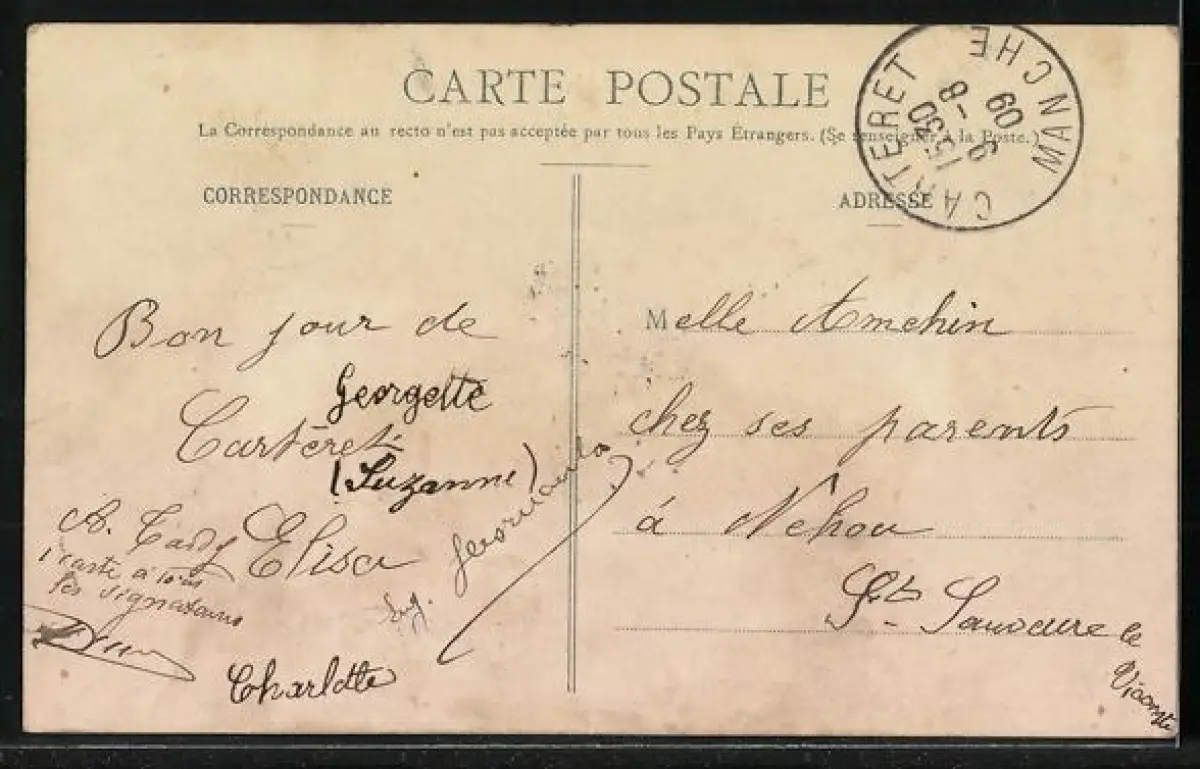 CARTE POSTALE
La Correspondance au recto n'est pas acceptée par tous les Pays Étrangers. (Se renseigner à la Poste.)
CORRESPONDANCE
ADRESSE
CARTERET MANCHE
15 30
8 - 9
09
Bon jour de
Georgette
Carteret
(Suzanne)
Elisa
1 carte à tous
les signataires
Charlotte
Melle Amchin
chez ses parents
à Nehou
St Sauveure le
Vicomte